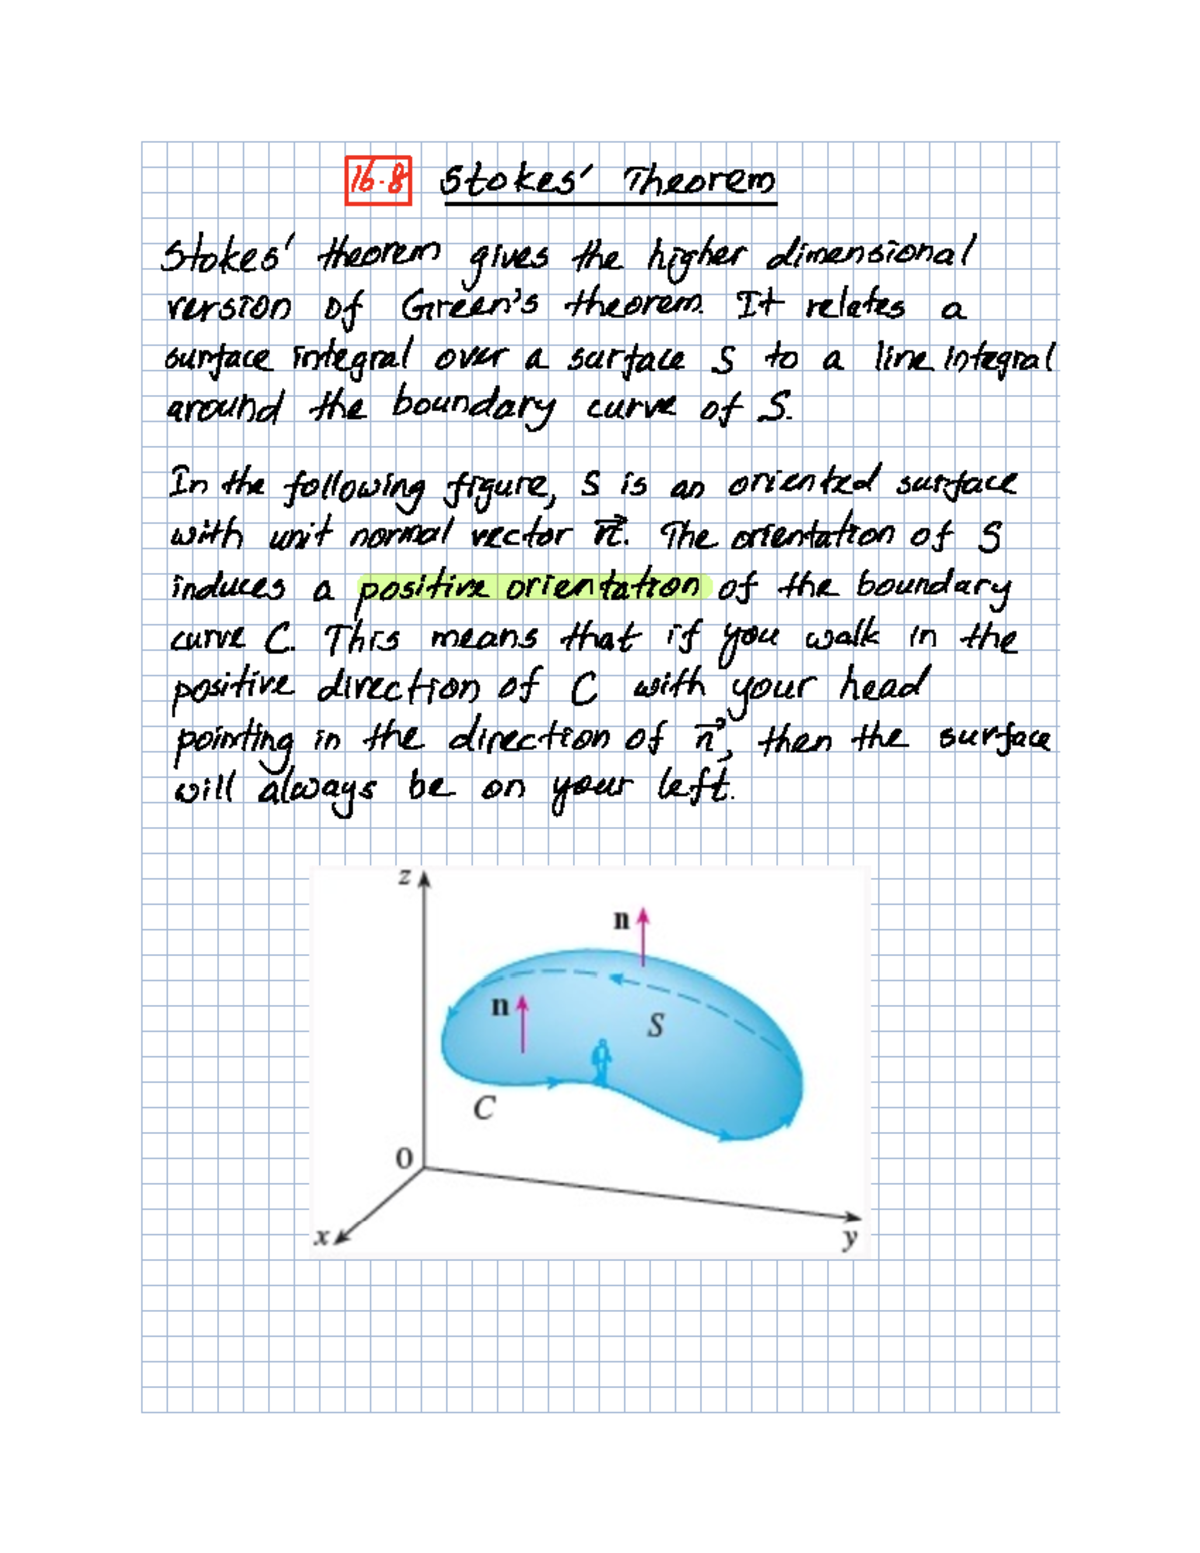 16.8 Stokes' Theorem
Stokes' theorem gives the higher dimensional
version of Green's theorem. It relates a
surface integral over a surface S to a line integral
around the boundary curve of S.
In the following figure, S is an oriented surface
with unit normal vector n⃗. The orientation of S
induces a positive orientation of the boundary
curve C. This means that if you walk in the
positive direction of C with your head
pointing in the direction of n⃗, then the surface
will always be on your left.
z
n
n
S
C
0
x
y